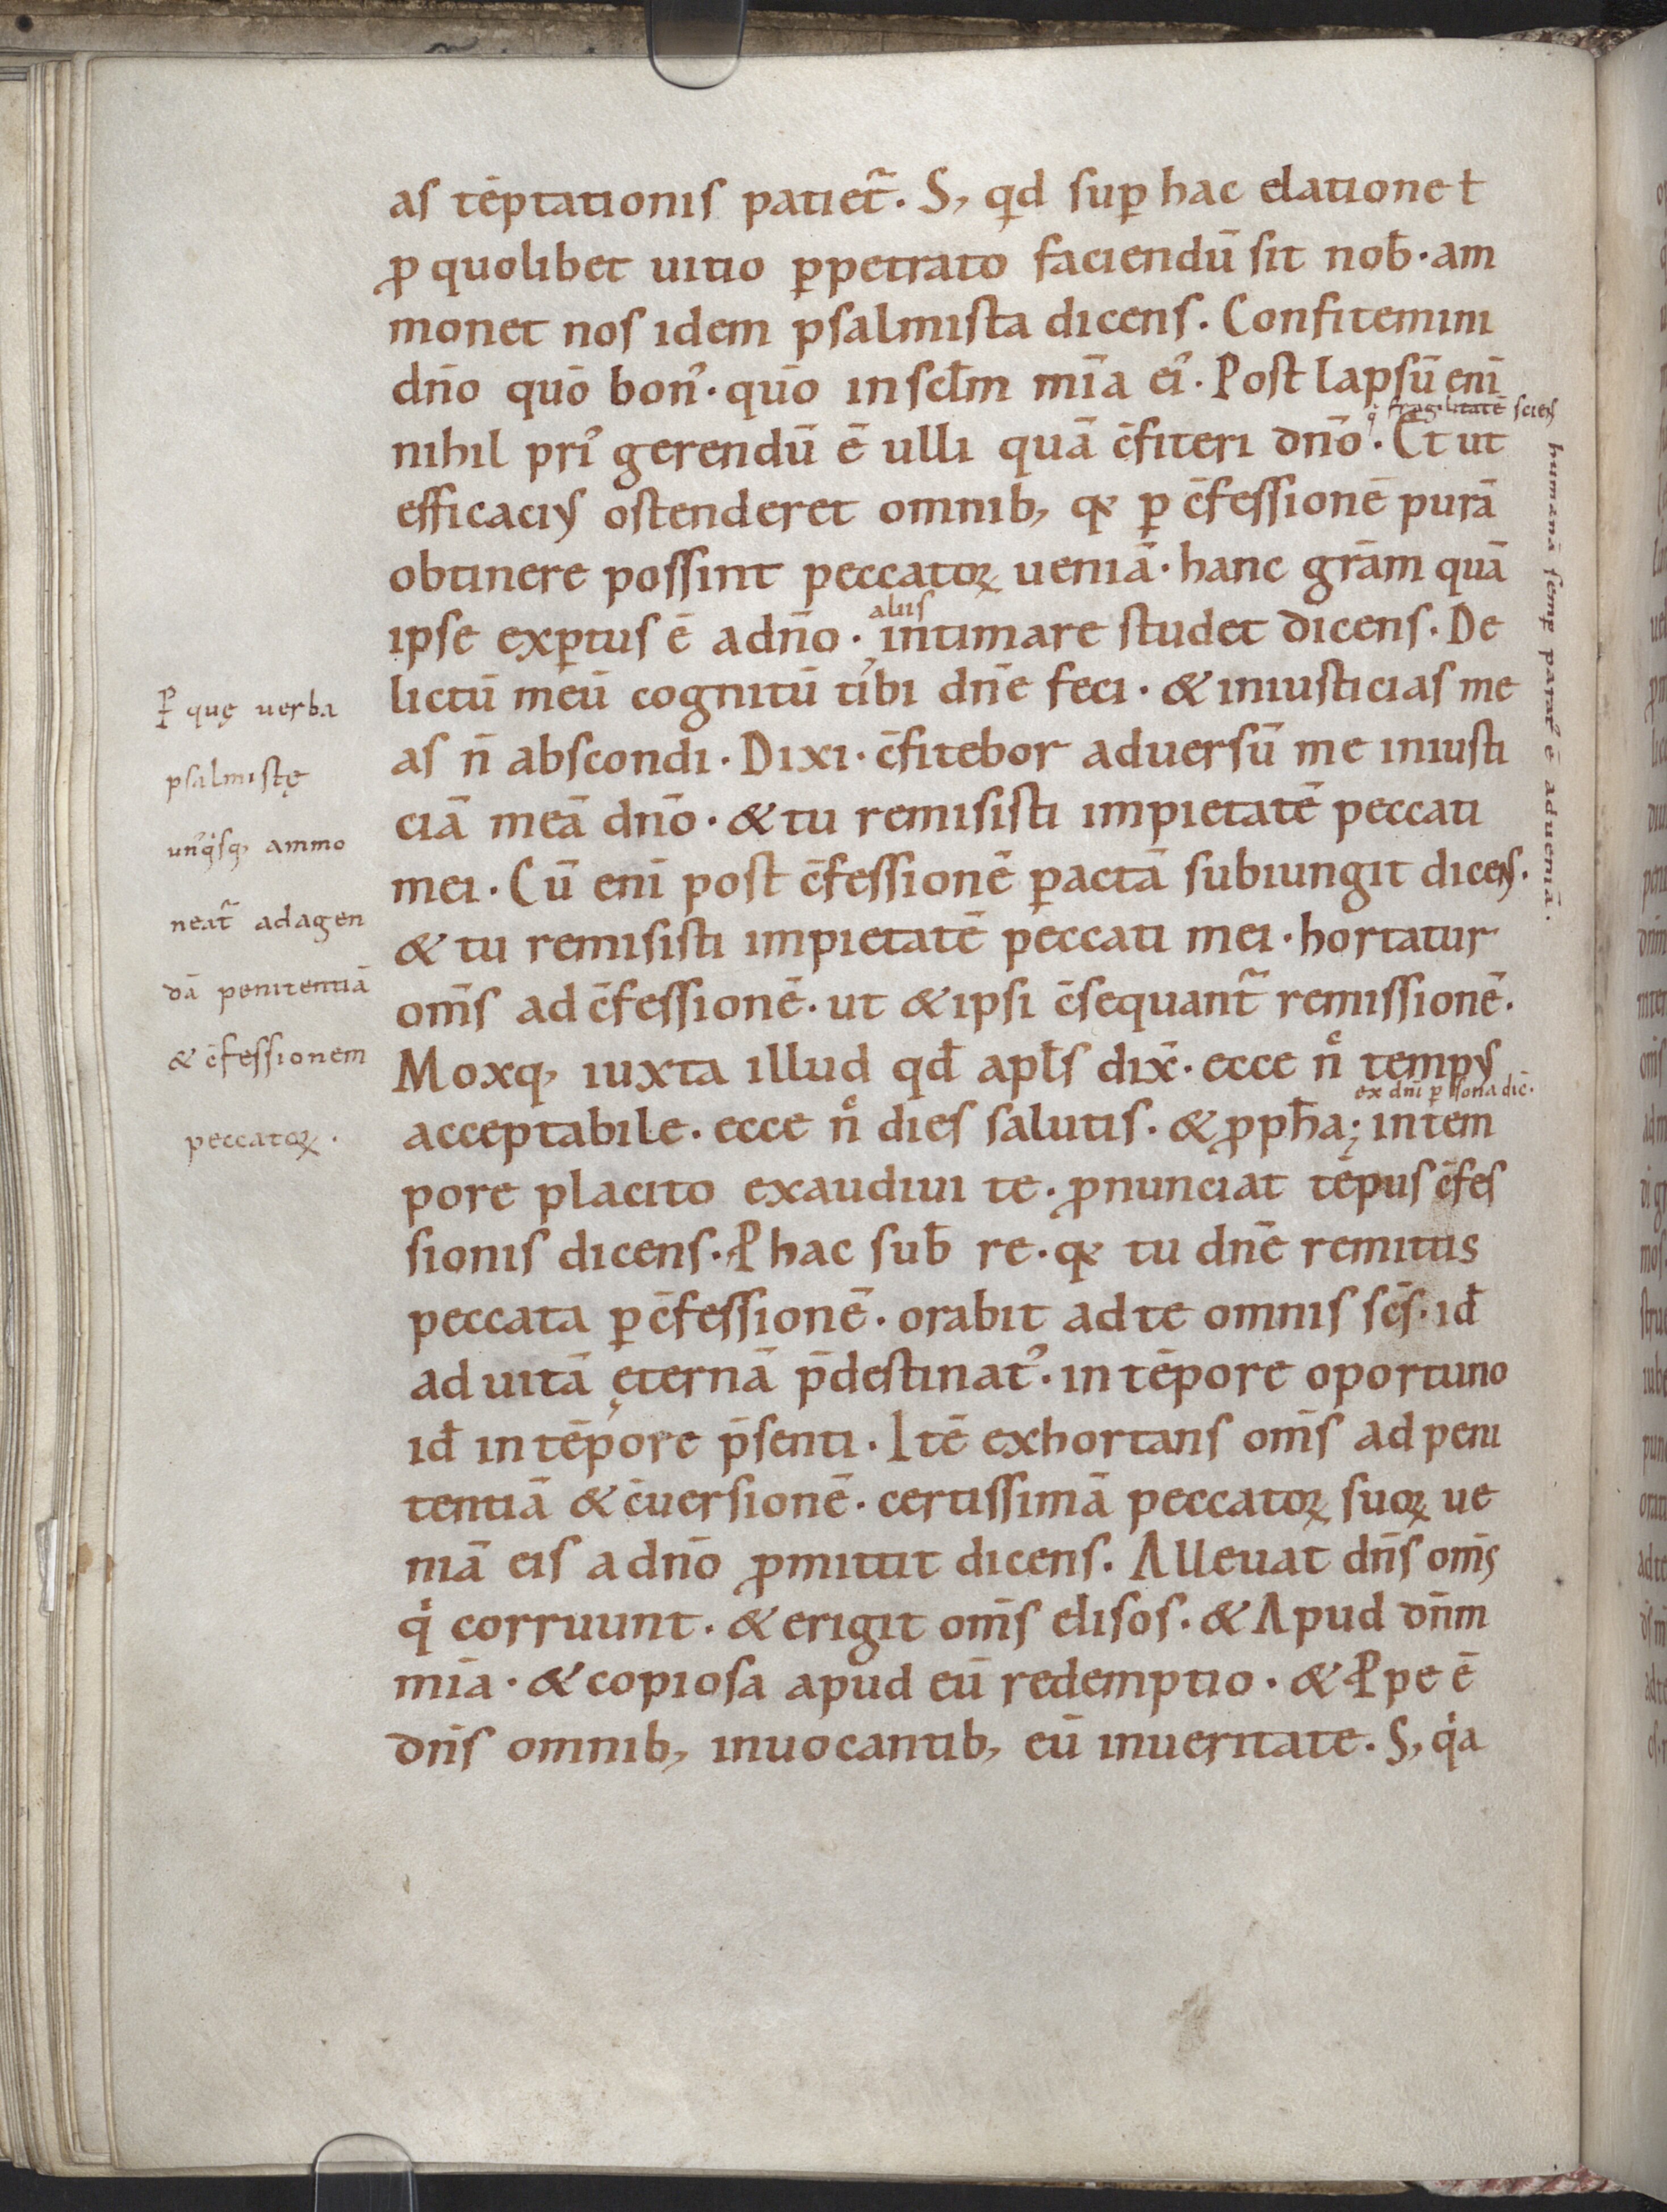 as tēptationis patiet᷑. S, qd sup̱ hac elatione ł
ꝓ quolibet uitio ꝑpetrato faciendū sit nob̄. am
monet nos idem psalmista dicens. Confitemini
dn̄o quō bon᾽. quō in sc̄lm mīa ei᾽. Post lapsū enī
qͥ fragilitatē sciens
nihil pri᾽ gerendū ē ulli quā c̄fiteri dn̄o. Et ut
humanā semꝑ parat᾽ ē ad ueniā.
efficacius ostenderet omnib, qꝫ ꝑ c̄fessionē purā
obtinere possint peccatoꝝ ueniā. hanc grām quā
aliis
ipse exꝑtus ē a dn̄o. intimare studet dicens. De
lictū meū cognitū tibi dn̄e feci. & iniusticias me
as n̄ abscondi. Dixi. c̄fitebor aduersū me iniusti
ciā meā dn̄o. & tu remisisti impietatē peccati
mei. Cū enī post c̄fessionē ꝑactā subiungit dicens.
& tu remisisti impietatē peccati mei. hortatur
om̄s ad c̄fessionē. ut & ipsi c̄sequant᷑ remissionē.
Moxq, iuxta illud qđ apl̄s dix̄. ecce nͨ tempus
ex dn̄i ꝑsona dic̄.
acceptabile. ecce nͨ dies salutis. & ꝓph̄a; in tem
pore placito exaudiui te. ꝓnunciat tēpus c̄fes
sionis dicens. Ꝓ hac sub̄ re. qꝫ tu dn̄e remittis
peccata ꝑ c̄fessionē. orabit ad te omnis sc̄s. id̄
ad uitā ęternā p̄destinat᾽. in tēpore oportuno
id̄ in tēpore p̄senti. Itē exhortans om̄s ad peni
tentiā & c̄uersionē. certissimā peccatoꝝ suoꝝ ue
niā eis a dn̄o ꝓmittit dicens. Alleuat dn̄s om̄s
qͥ corruunt. & erigit om̄s elisos. & Apud dn̄m
mīa. & copiosa apud eū redemptio. & Ꝓpe ē
dn̄s omnib, inuocantib, eū in ueritate. S, qͥa
Ꝑ quę uerba
psalmistę
un᾽qͥsq, ammo
neat᷑ ad agen
dā penitentiā
& c̄fessionem
peccatoꝝ.